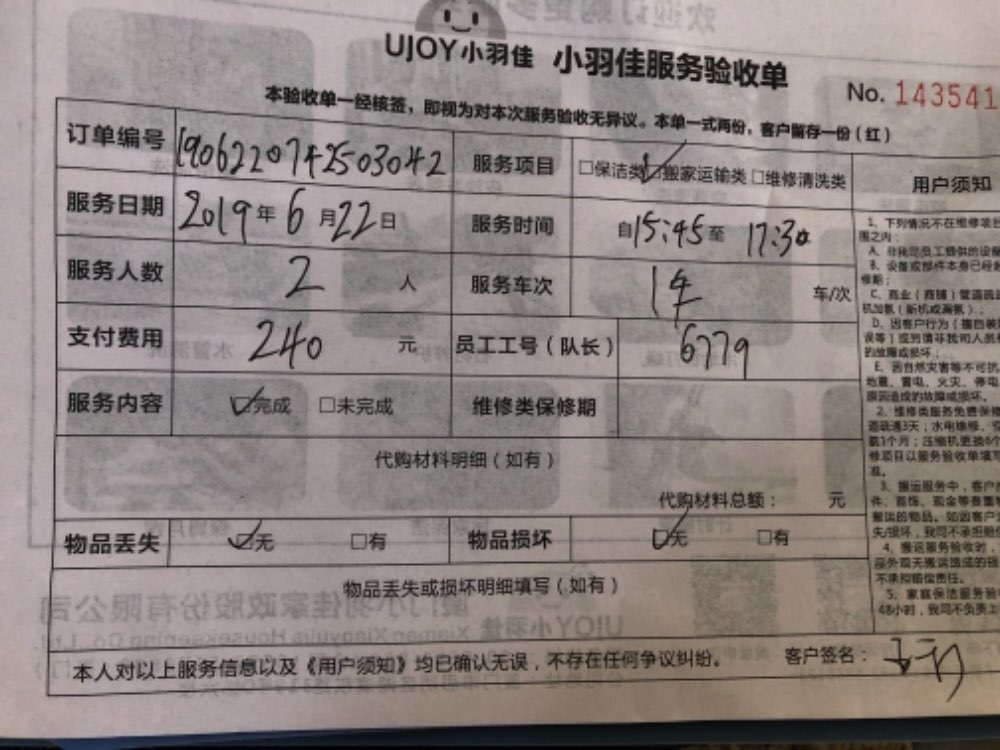 UJOY小羽佳 小羽佳服务验收单
No. 143541
本验收单一经核签，即视为对本次服务验收无异议。本单一式两份，客户留存一份（红）
订单编号 1906220742503042 服务项目 □保洁类 ☑搬家运输类 □维修清洗类 用户须知
服务日期 2019年6月22日 服务时间 自15:45至 17:30
服务人数 2 人 服务车次 1车 车/次
支付费用 240 元 员工工号（队长） 6779
服务内容 ☑完成 □未完成 维修类保修期
代购材料明细（如有）
代购材料总额： 元
物品丢失 ☑无 □有 物品损坏 ☑无 □有
物品丢失或损坏明细填写（如有）
本人对以上服务信息以及《用户须知》均已确认无误，不存在任何争议纠纷。 客户签名：
1、下列情况不在维修项目
围之内：
A、非我司员工提供的设备
B、设备或部件本身已经
修期；
C、商业（商铺）管道疏
机加氨（新机或漏氨）；
D、因客户行为（擅自
误等）或另请非我司人员
的故障或损坏；
E、因自然灾害等不可抗
地震、雷电、火灾、停电
原因造成的故障或损坏。
2、维修类服务免费保
道疏通3天；水电维修、
氨1个月；压缩机更换6个
修项目以服务验收单填写
准。
3、搬运服务中，客户
件、首饰、现金等贵重
搬运的物品。如因客户
失/损坏，我司不承担赔
4、搬运服务验收时，
品外观无搬运造成的损
不承担赔偿责任。
5、家庭保洁服务验
48小时，我司不负责上